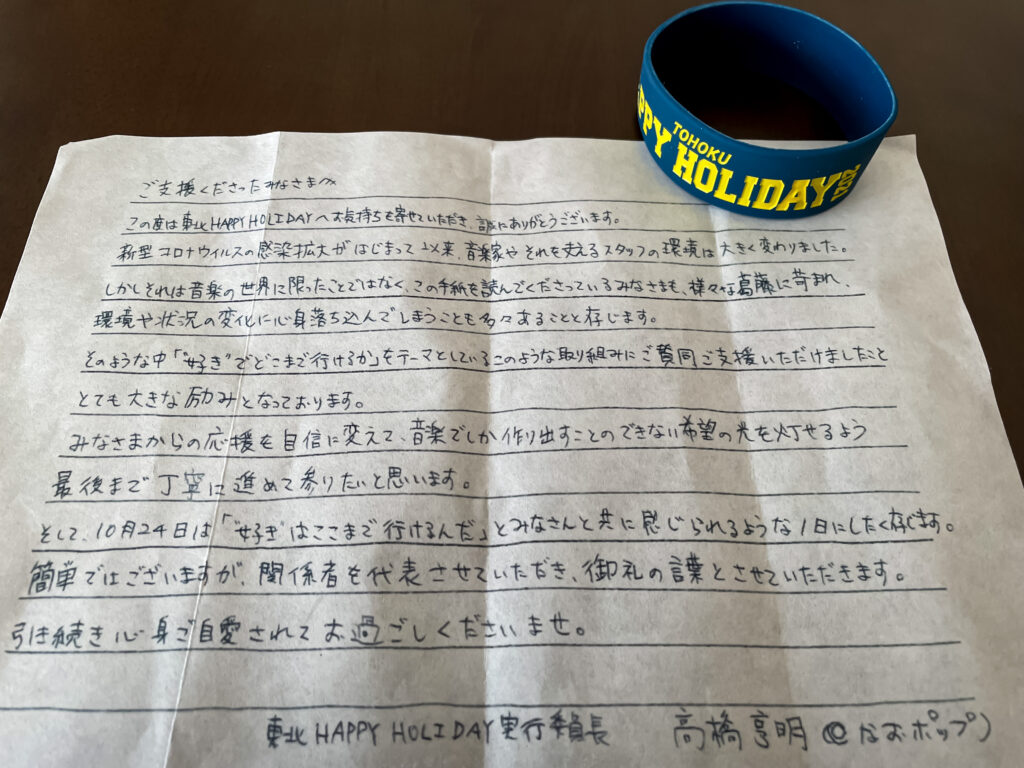 PPY TOHOKU
HOLIDAY
ご支援くださったみなさまへ
この度は東北HAPPY HOLIDAYへお気持ちを寄せていただき、誠にありがとうございます。
新型コロナウイルスの感染拡大がはじまって以来、音楽家やそれを支えるスタッフの環境は大きく変わりました。
しかしそれは音楽の世界に限ったことではなく、この手紙を読んでくださっているみなさまも、様々な葛藤に苛まれ、
環境や状況の変化に心身落ち込んでしまうことも多々あることと存じます。
そのような中「"好き"でどこまで行けるか」をテーマとしているこのような取り組みにご賛同ご支援いただけましたこと
とても大きな励みとなっております。
みなさまからの応援を自信に変えて、音楽でしか作り出すことのできない希望の光を灯せるよう
最後まで丁寧に進めて参りたいと思います。
そして、10月24日は「"好き"はここまで行けるんだ」とみなさんと共に感じられるような1日にしたく存じます。
簡単ではございますが、関係者を代表させていただき、御礼の言葉とさせていただきます。
引き続き心身ご自愛されてお過ごしくださいませ。
東北HAPPY HOLIDAY実行委員長 高橋亨明@なおポップ